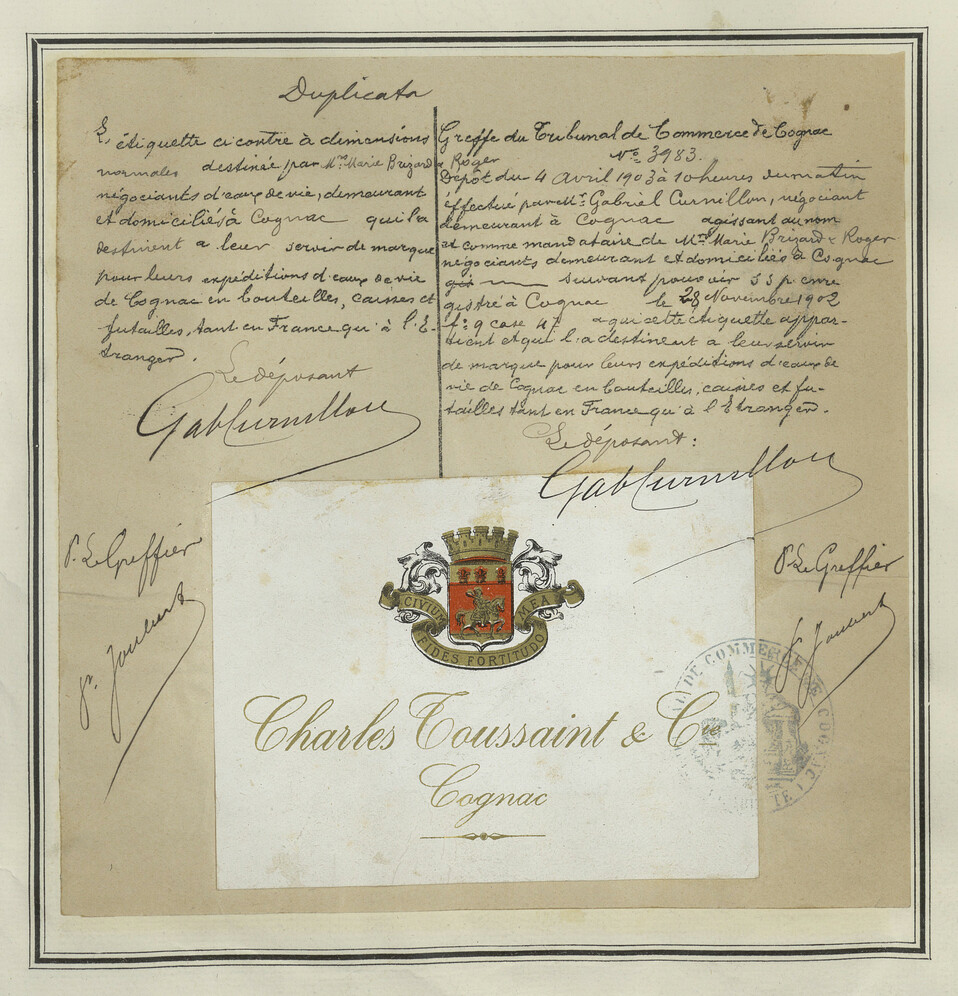 Duplicata
L'étiquette ci contre à dimensions
normales destinée par Mrs Marie Brizard & Roger
négociants d'eaux de vie, demeurant
et domiciliés à Cognac qui la
destinent a leur servir de marque
pour leurs expéditions d'eaux de vie
de Cognac en bouteilles, caisses et
futailles, tant en France qu'à l'E-
tranger.
Le déposant
Gab Curnillon
P. Le Greffier
P. Joubert
Greffe du Tribunal de Commerce de Cognac
No 3983.
Dépôt du 4 Avril 1903 à 10 heures du matin
éffectué par Mr Gabriel Curnillon, négociant
demeurant à Cognac agissant au nom
et comme mandataire de Mrs Marie Brizard & Roger
négociants demeurant et domiciliés à Cognac
suivant pouvoir s s p enre
gistré à Cognac le 28 Novembre 1902
fo 9 case 47 a qui cette étiquette appar-
tient et qui l'a destinent a leur servir
de marque pour leurs expéditions d'eaux de
vie de Cognac en bouteilles, caisses et fu-
tailles tant en France qu'à l'Etranger.
Le déposant:
Gab Curnillon
P. Le Greffier
P. Joubert
CIVIUM MEA
FIDES FORTITUDO
Charles Toussaint & Cie
Cognac
DE COMMERCE DE COGNAC